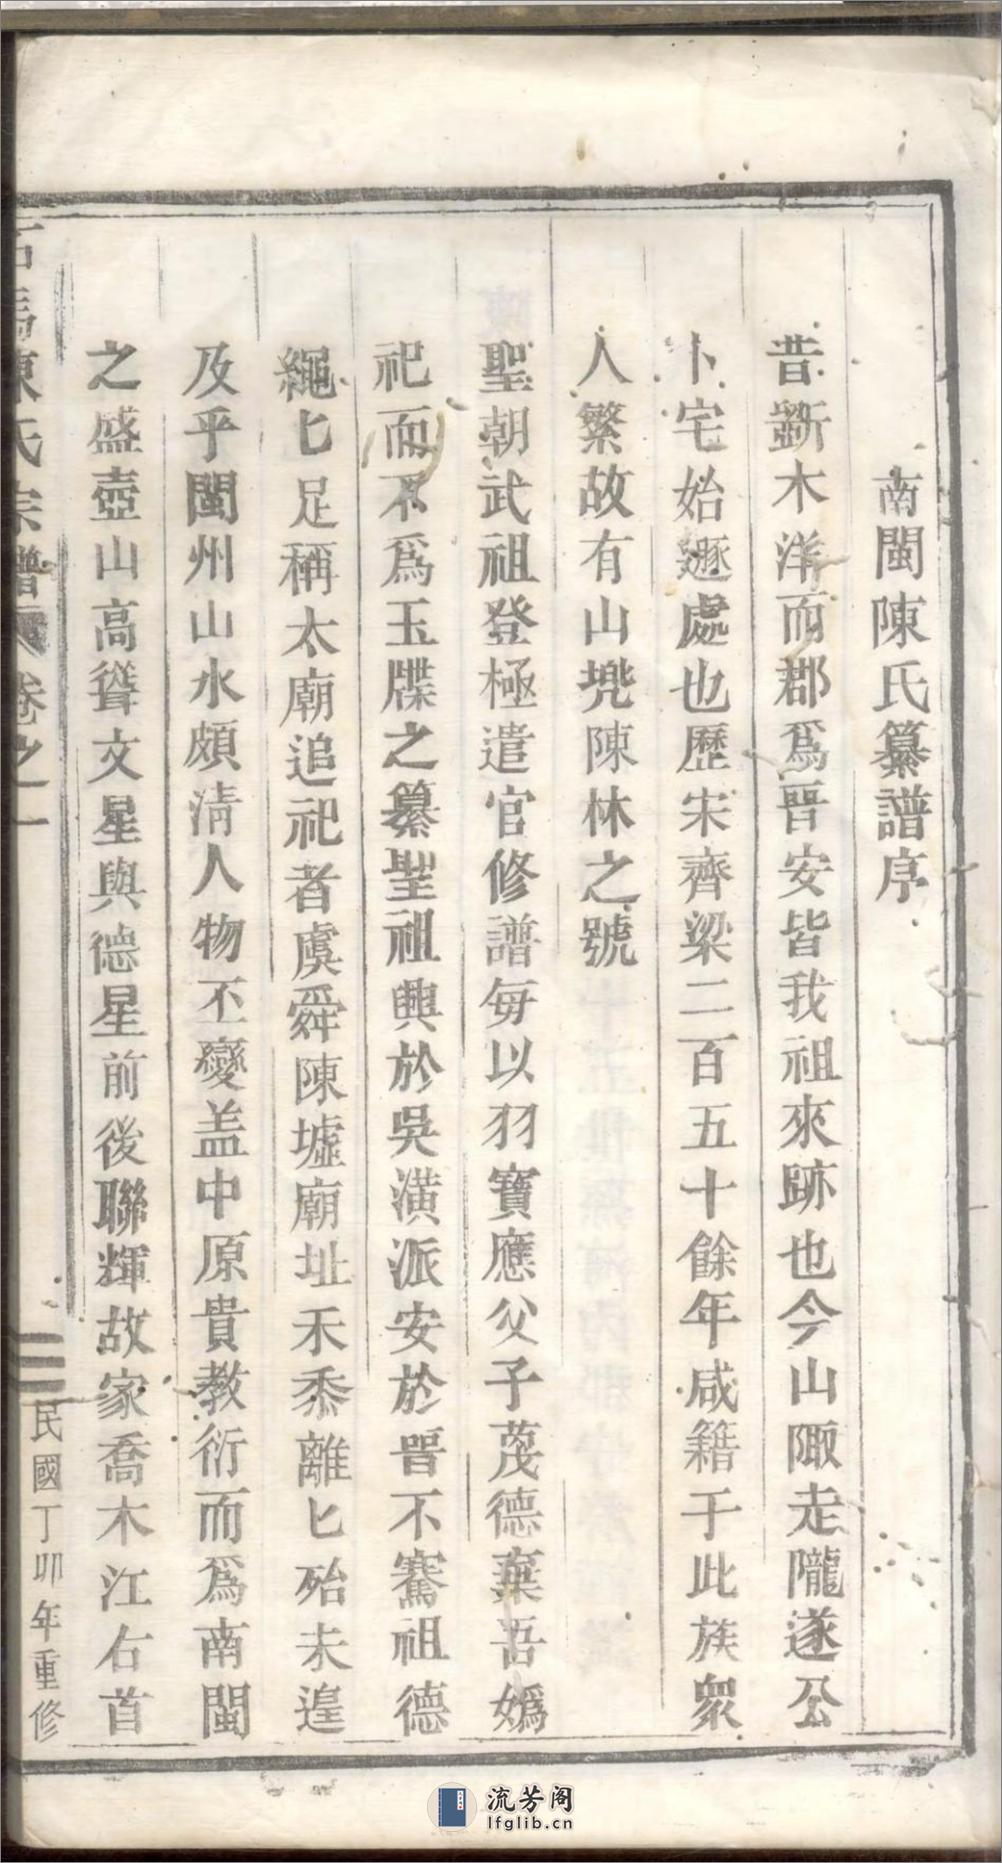 南閩陳氏纂譜序
昔斵木洋而郡爲晋安皆我祖來跡也今山陬走隴遂公
卜宅始遯處也歷宋齊梁二百五十餘年咸籍于此族衆
人繁故有山兠陳林之號
聖朝武祖登極遣官修譜毎以羽寶應父子茂德棄吾嬀
祀而不爲玉牒之纂聖祖興於吳潢派安於晋不騫祖德
繩匕足稱太廟追祀者虞舜陳墟廟址禾黍離匕殆未遑
及乎閩州山水頗淸人物丕變盖中原貴教衍而爲南閩
之盛壺山高聳文星與德星前後聯輝故家喬木江右首
石馬陳氏宗譜 卷之一 民國丁卯年重修
流芳阁
lfglib.cn